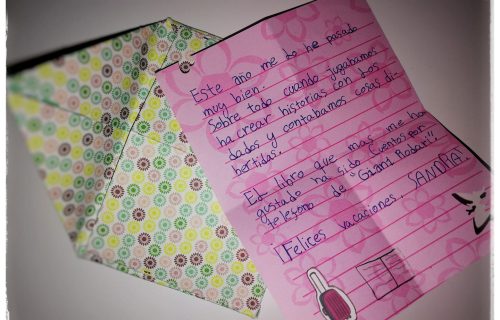 Este año me lo he pasado
muy bien.
Sobre todo cuando jugabamos
ha crear historias con los
dados y contabamos cosas di-
bertidas.
EL libro que mas me ha
gustado ha sido "Cuentos por
telefono" de "Gianni Rodari".
¡Felices vacaciones, SANDRA!